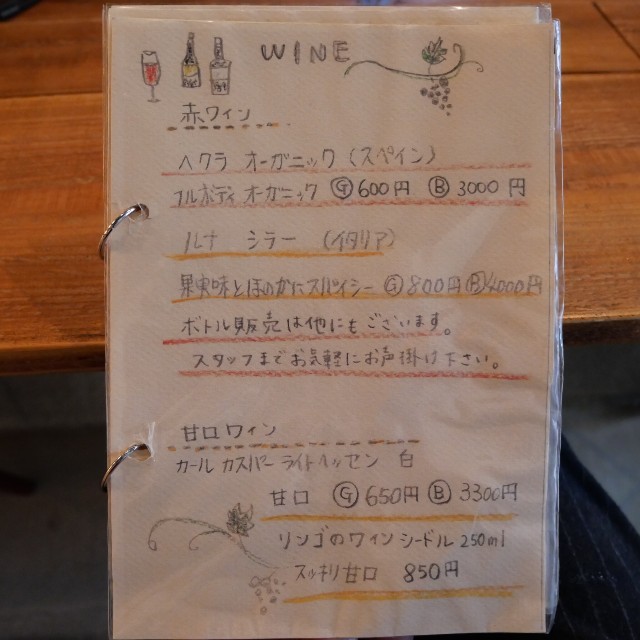 WINE
赤ワイン
ヘクラ オーガニック (スペイン)
フルボディ オーガニック Ⓖ 600円 Ⓑ 3000円
ルナ シラー (イタリア)
果実味とほのかにスパイシー Ⓖ 800円 Ⓑ 4000円
ボトル販売は他にもございます。
スタッフまでお気軽にお声掛け下さい。
甘口ワイン
カール カスパー ライトヘッセン 白
甘口 Ⓖ 650円 Ⓑ 3300円
リンゴのワイン シードル 250ml
スッキリ甘口 850円